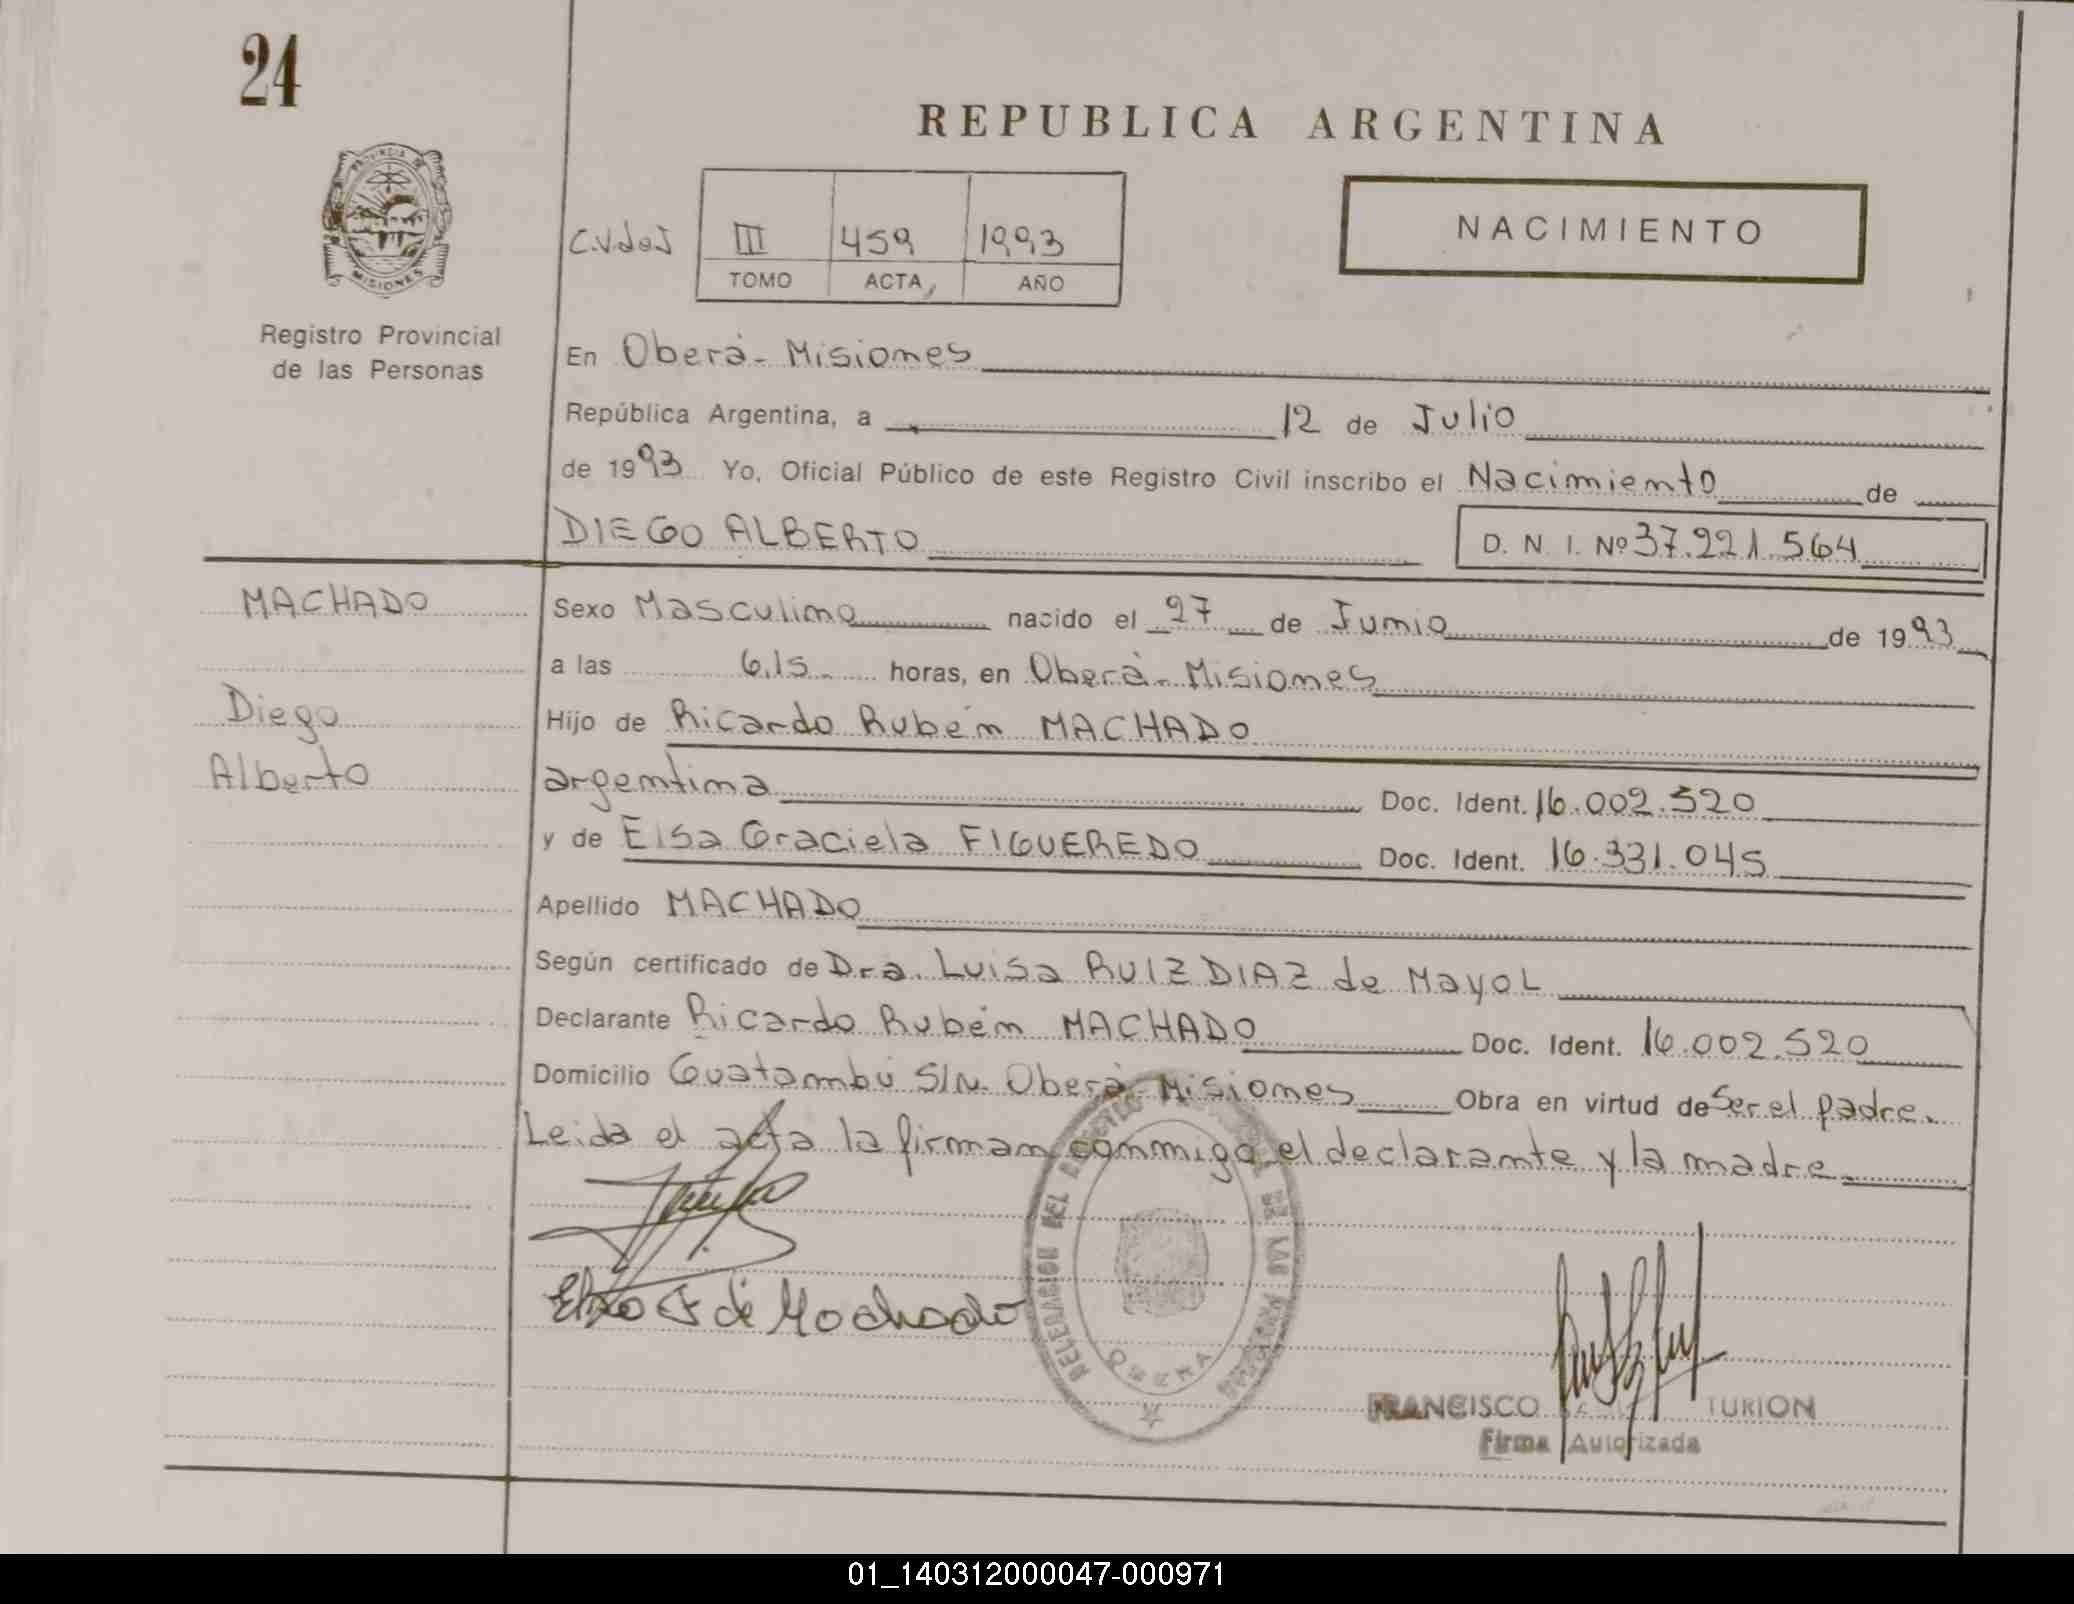 24
REPUBLICA ARGENTINA
PROVINCIA DE
MISIONES
Registro Provincial
de las Personas
C.V.deJ III 459 1993
TOMO ACTA AÑO
NACIMIENTO
En Oberá - Misiones
República Argentina, a 12 de Julio
de 1993 Yo, Oficial Público de este Registro Civil inscribo el Nacimiento de
DIEGO ALBERTO D. N. I. Nº 37.221.564
MACHADO
Diego
Alberto
Sexo Masculino nacido el 27 de Junio de 1993
a las 6,15 horas, en Oberá - Misiones
Hijo de Ricardo Rubén MACHADO
argentina Doc. Ident. 16.002.520
y de Elsa Graciela FIGUEREDO Doc. Ident. 16.331.045
Apellido MACHADO
Según certificado de Dra. Luisa RUIZ DIAZ de Mayol
Declarante Ricardo Rubén MACHADO Doc. Ident. 16.002.520
Domicilio Guatambú S/N. Oberá - Misiones Obra en virtud de Ser el padre.
Leida el acta la firman conmigo el declarante y la madre
Elsa F de Machado
DELEGACION DEL REGISTRO PROVINCIAL DE LAS PERSONAS
OBERA
FRANCISCO TURION
Firma Autorizada
01_140312000047-000971